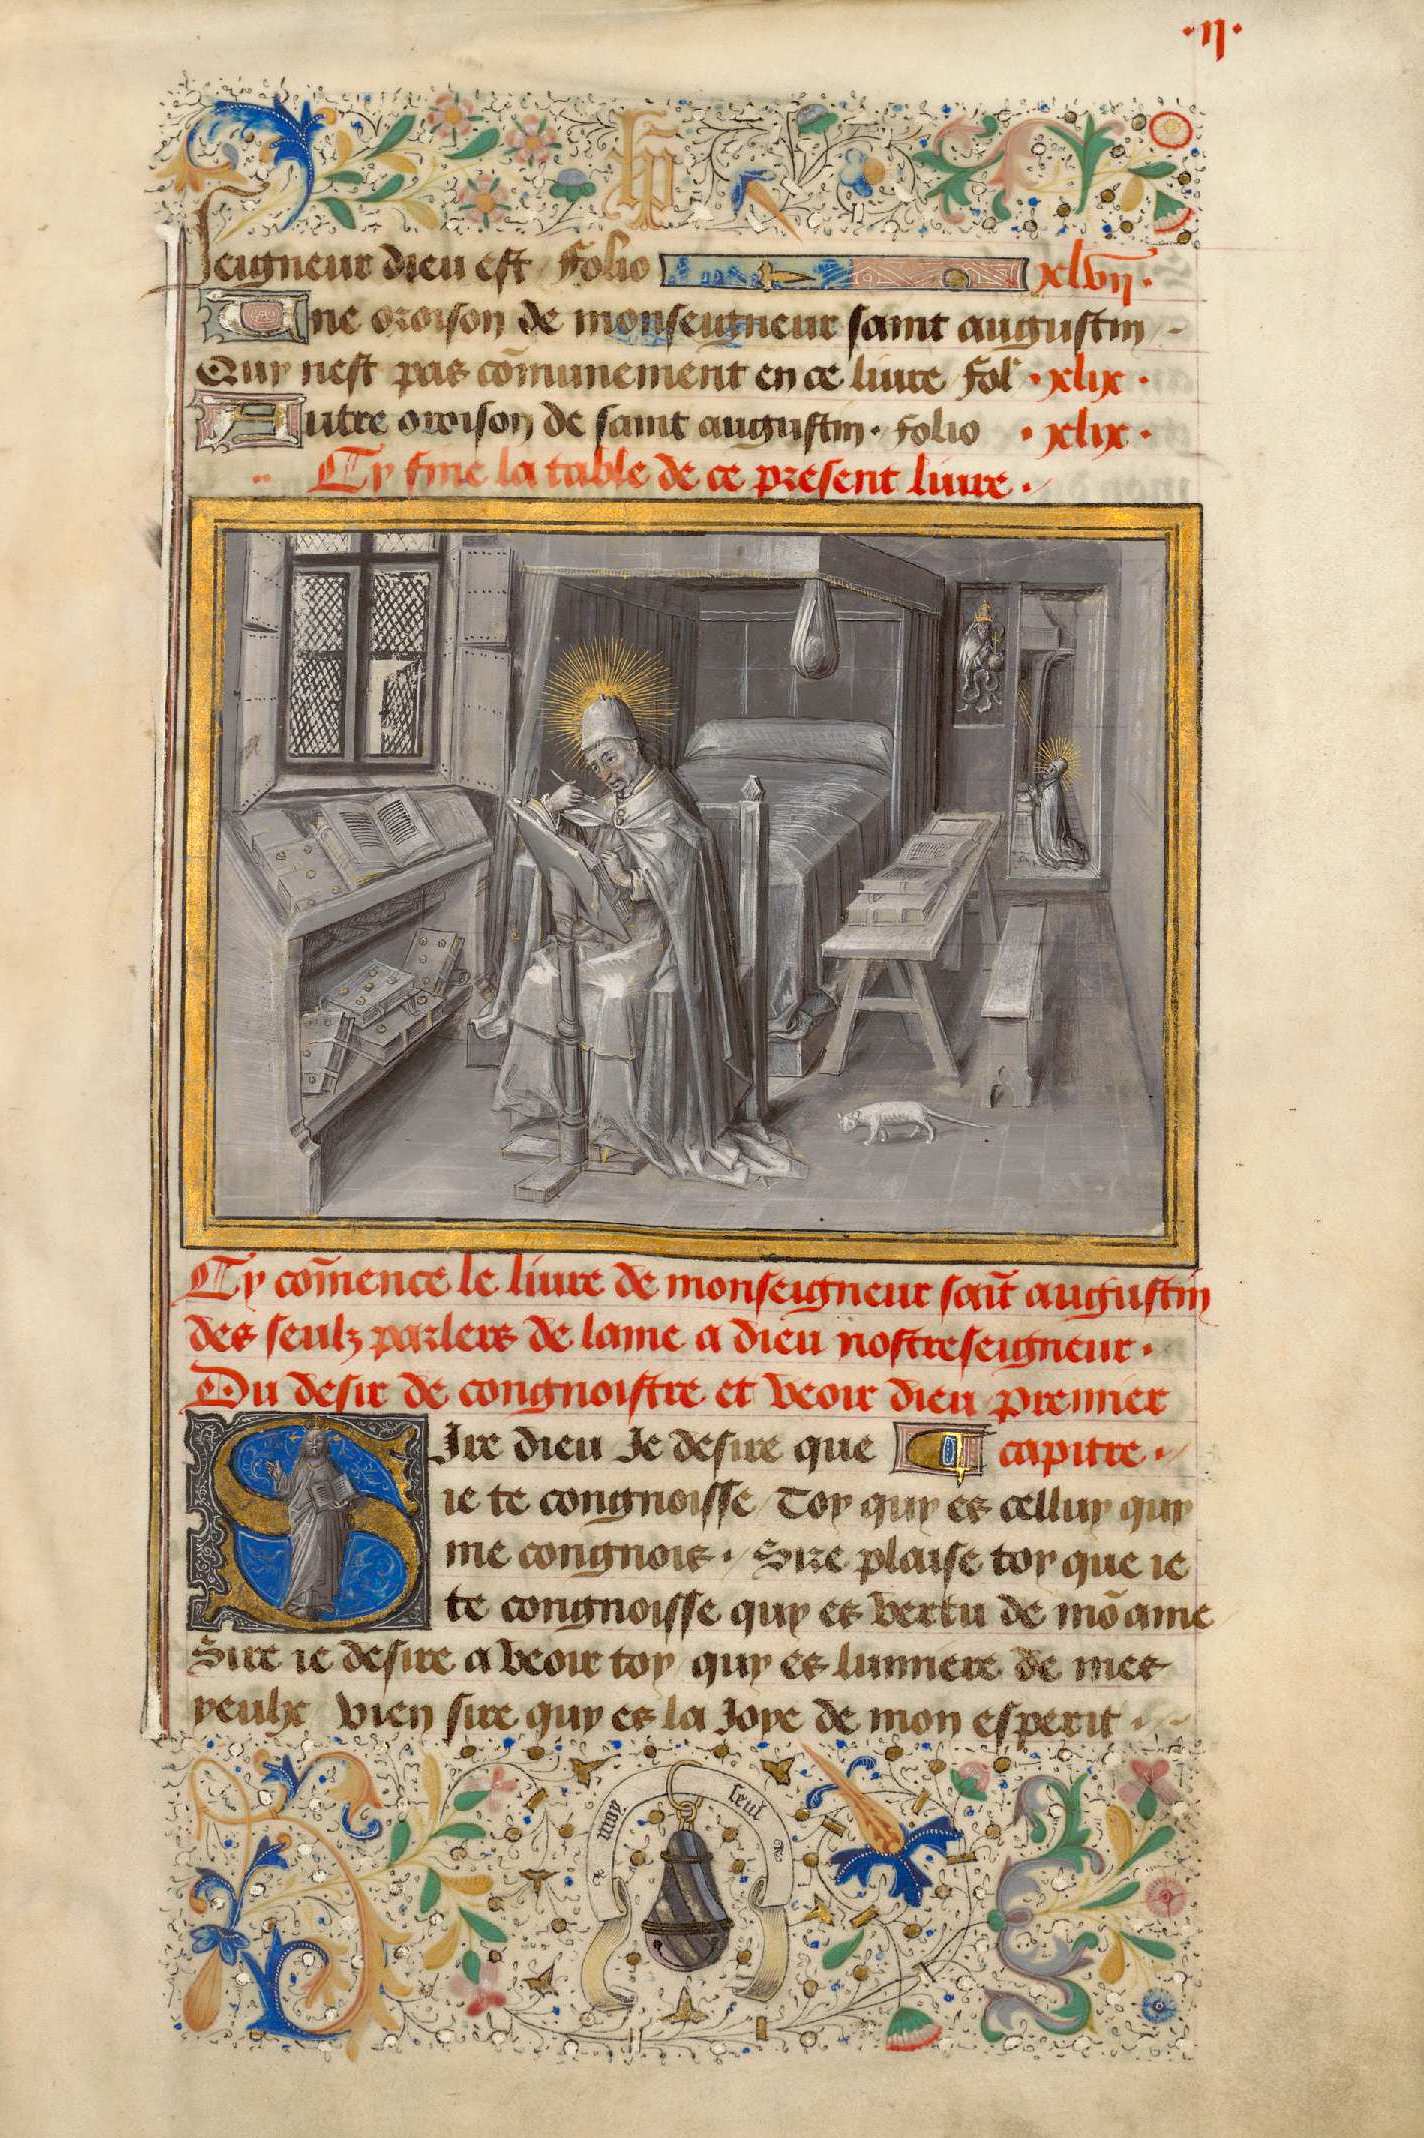 ·ij·
Seigneur dieu est / Folio xlvij·
Une oroison de monseigneur saint augustin /-
Quy nest pas cōmunement en ce liure fol' · xlix ·
Autre oroison de saint augustin · Folio · xlix ·
Cy fine la table de ce present liure ·
Cy cōmence le liure de monseigneur saīt augustin
des seulz parlers de lame a dieu nostreseigneur ·
Du desir de congnoistre et veoir dieu premier
SIre dieu Je desire que capitre ·
ie te congnoisse / Toy quy es celluy quy
me congnois · / Sire plaise toy que ie
te congnoisse quy es vertu de mō ame
Sire ie desire a veoir toy quy es lumiere de mes
yeulx vien sire quy es la Joye de mon esperit ·
moy seul